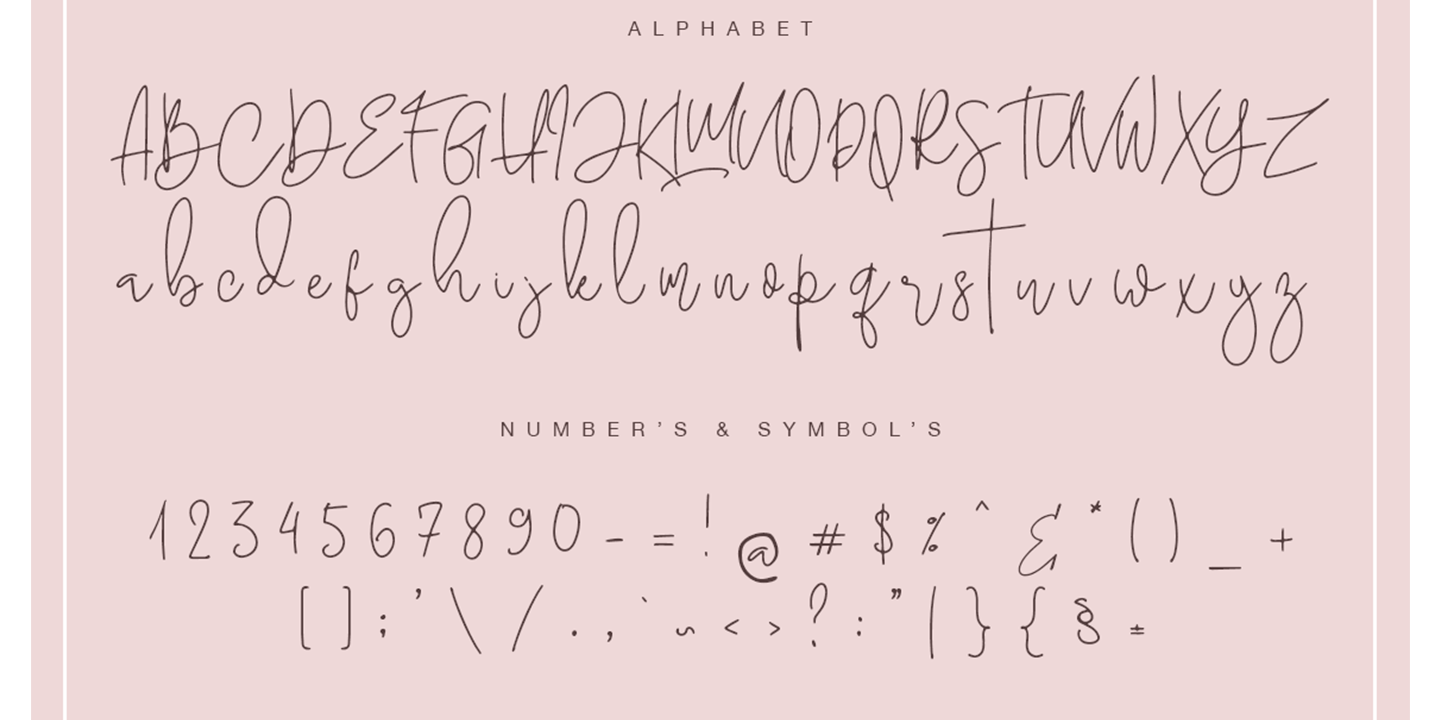 ALPHABET
ABCDEFGHIJKLMNOPQRSTUVWXYZ
abcdefghijklmnopqrstuvwxyz
NUMBER'S & SYMBOL'S
1 2 3 4 5 6 7 8 9 0 - = ! @ # $ % ^ & * ( ) _ +
[ ] ; ’ \ / . , ` ~ < > ? : ” | } { § ±